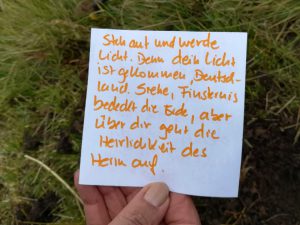 Steh auf und werde
Licht. Denn dein Licht
ist gekommen, Deutsch-
land. Siehe, Finsternis
bedeckt die Erde, aber
über dir geht die
Herrlichkeit des
Herrn auf.